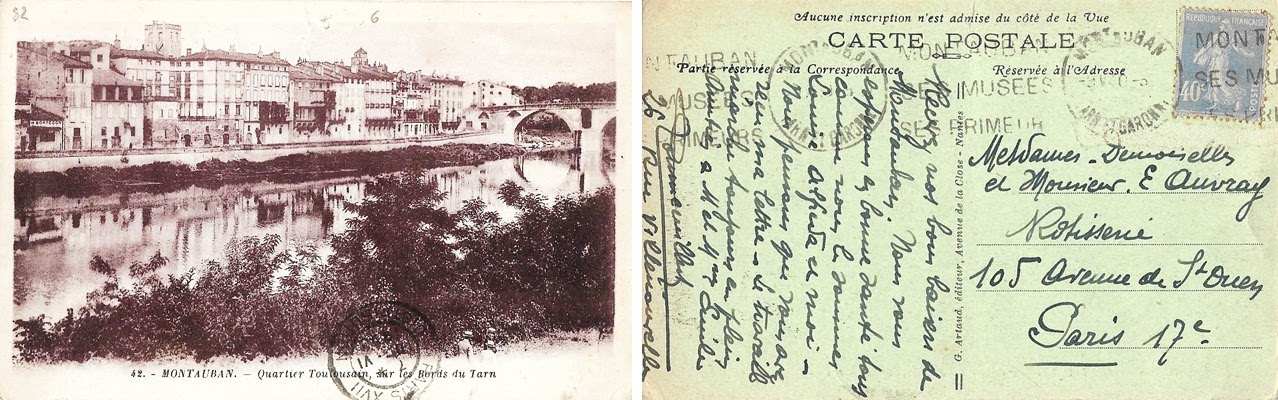 82
6
42. - MONTAUBAN. - Quartier Toulousain, sur les Bords du Tarn
PARIS XVII
Aucune inscription n'est admise du côté de la Vue
CARTE POSTALE
Partie réservée à la Correspondance
Réservée à l'Adresse
MONTAUBAN
SES MUSÉES
SES PRIMEURS
MONTAUBAN
TARN ET GARONNE
RÉPUBLIQUE FRANÇAISE
40c
POSTES
Recevez nos bons baisers de
Montauban. Nous vous
espérons en bonne santé tous
comme nous le sommes
Louise et moi -
Nous pensons que vous avez
reçu ma lettre. Le travail
marche toujours en plein
Amitiés à Mr et Mme
26 Rue Villenouvelle
G. Artaud, éditeur, Avenue de la Close - Nantes
Mesdames - Demoiselles
et Monsieur. E Auvray
Rotisserie
105 Avenue de St Ouen
Paris 17e